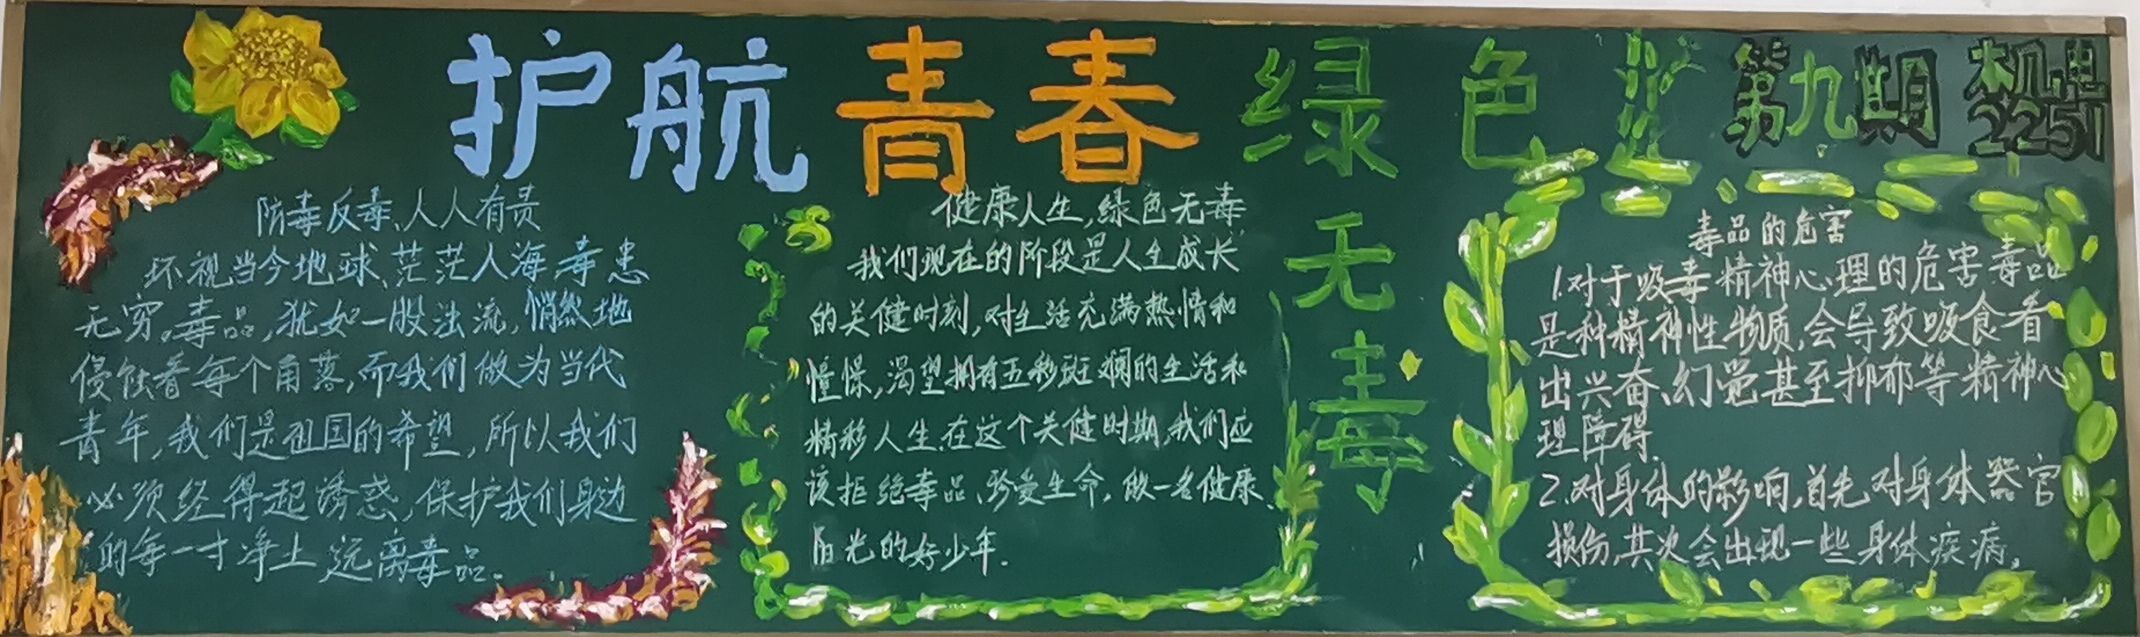 护航青春绿色
无
毒
第九期 机电
2251
防毒反毒、人人有责
环视当今地球、茫茫人海,毒患
无穷。毒品,犹如一股浊流,悄然地
侵蚀着每个角落,而我们做为当代
青年,我们是祖国的希望,所以我们
必须经得起诱惑,保护我们身边
的每一寸净土 远离毒品.
健康人生,绿色无毒
我们现在的阶段是人生成长
的关健时刻,对生活充满热情和
憧憬,渴望拥有五彩斑斓的生活和
精彩人生.在这个关健时期,我们应
该拒绝毒品、珍爱生命,做一名健康
阳光的好少年.
毒品的危害
1.对于吸毒精神心理的危害毒品
是种精神性物质,会导致吸食者
出兴奋、幻觉甚至抑郁等精神心
理障碍.
2.对身体的影响,首先对身体器官
损伤,其次会出现一些身体疾病。